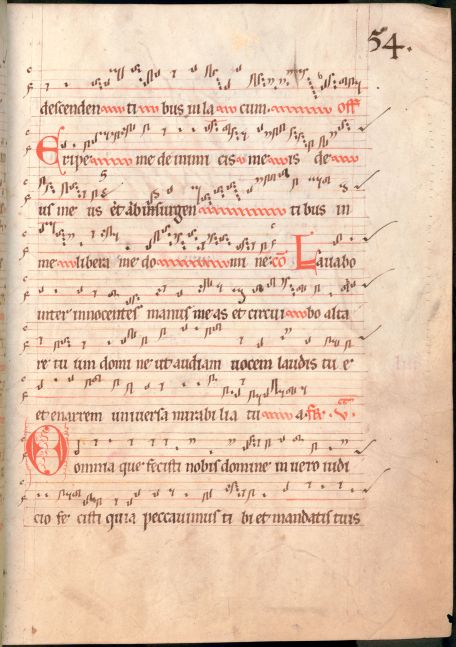 54.
descenden ti bus in la cum. off
Eripe me de inimi cis me is de
us me us et ab insurgen ti bus in
me libera me do mi ne. co Lauabo
inter innocentes manus meas et circui bo alta
re tu um domi ne ut audiam uocem laudis tu e
et enarrem uniuersa mirabi lia tu a. fr. V.
Omnia que fecisti nobis domine in uero iudi
cio fe cisti quia peccauimus ti bi et mandatis tuis